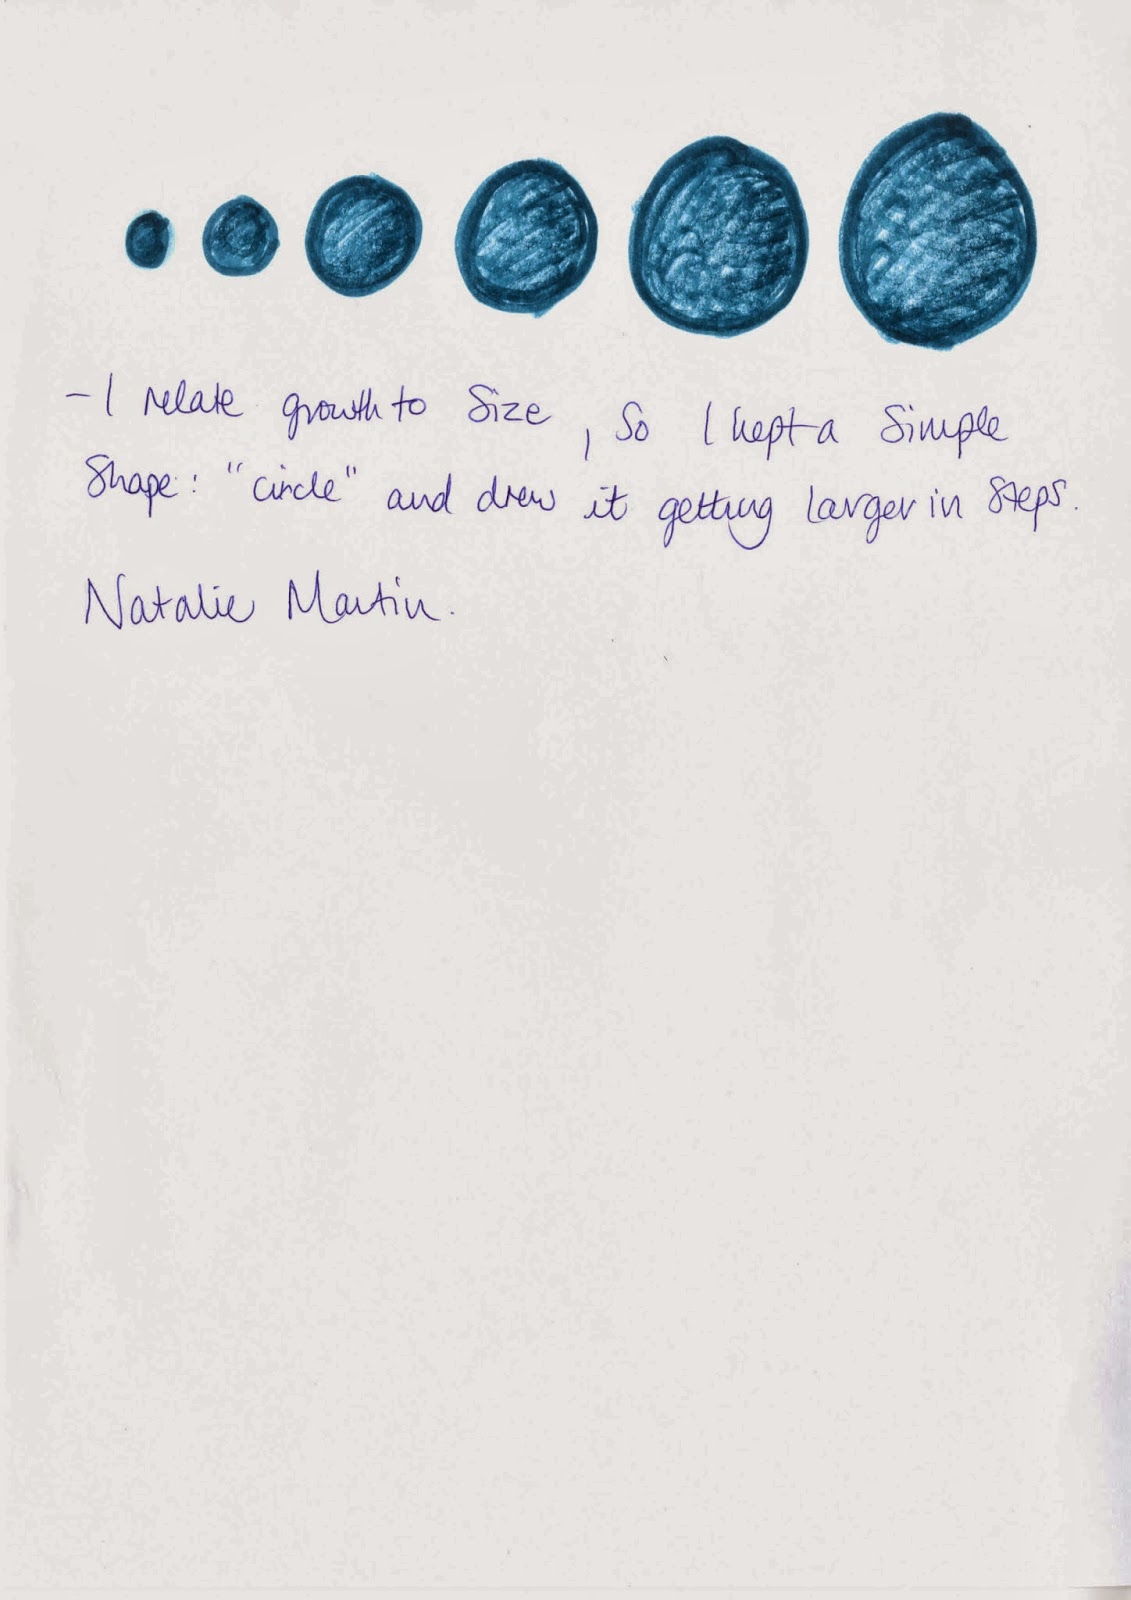 - I relate growth to Size, So I kept a Simple
Shape: "circle" and drew it getting larger in Steps.
Natalie Martin.